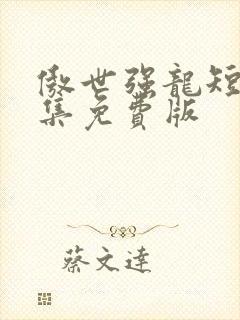 傲世强龍短
集免費版
蔡文達